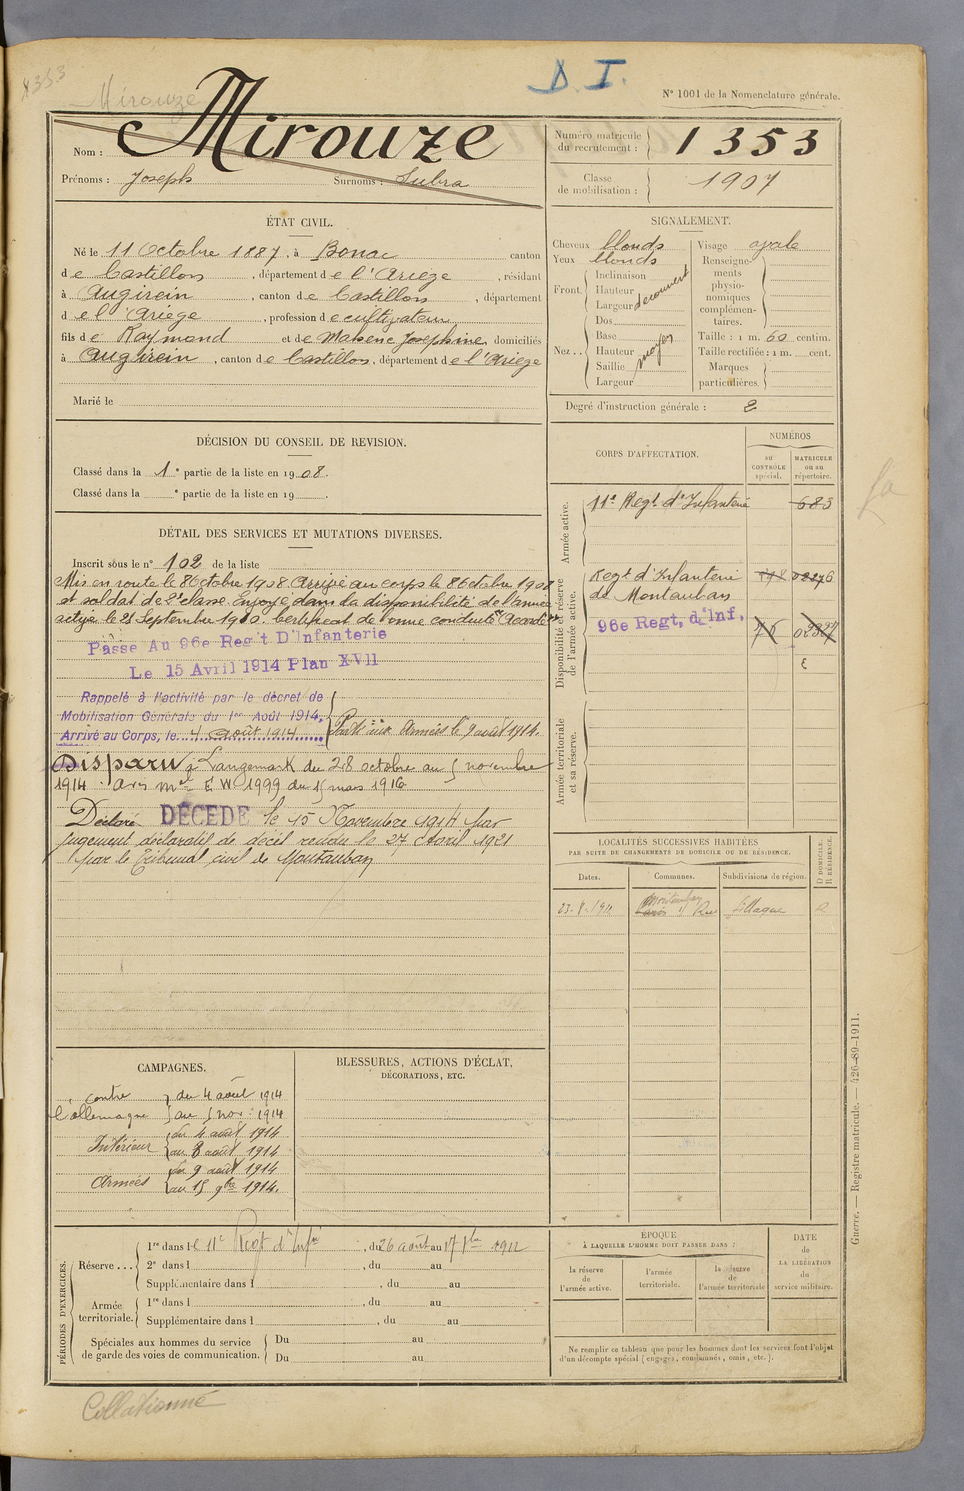 1353
D. I.
N° 1001 de la Nomenclature générale.
Mirouze
Nom : Mirouze
Prénoms : Joseph Surnoms : Subra
Numéro matricule du recrutement : 1353
Classe de mobilisation : 1907
ÉTAT CIVIL.
Né le 11 Octobre 1887, à Bonac canton
de Castillon, département de l'Ariège, résidant
à Augirein, canton de Castillon, département
de l'Ariège, profession de cultivateur
fils de Raymond et de Massene Joséphine, domiciliés
à Augirein, canton de Castillon, département de l'Ariège
Marié le
SIGNALEMENT.
Cheveux blonds
Yeux blonds
Front. Inclinaison
Hauteur
Largeur découvert
Nez.. Dos
Base
Hauteur moyen
Saillie
Largeur
Visage ovale
Renseignements physionomiques complémentaires.
Taille : 1 m. 60 centim.
Taille rectifiée : 1 m. cent.
Marques particulières.
Degré d'instruction générale : 2
DÉCISION DU CONSEIL DE REVISION.
Classé dans la 1e partie de la liste en 1908.
Classé dans la e partie de la liste en 19 .
DÉTAIL DES SERVICES ET MUTATIONS DIVERSES.
Inscrit sous le n° 102 de la liste
Mis en route le 8 Octobre 1908. Arrivé au corps le 8 Octobre 1908
et soldat de 2e classe. Envoyé dans la disponibilité de l'armée
active le 25 Septembre 1910. Certificat de bonne conduite "Accordé"
Passé Au 96e Reg't D'Infanterie
Le 15 Avril 1914 Plan XVII
Rappelé à l'activité par le décret de
Mobilisation Générale du 1er Août 1914.
Arrivé au Corps, le 4 août 1914
Parti aux Armées le 9 août 1914.
Disparu à Langemark du 28 octobre au 5 novembre
1914 avis mel E W 1999 du 15 mars 1916
Déclaré DÉCÉDÉ le 15 Novembre 1914 par
jugement déclaratif de décès rendu le 27 Avril 1921
par le Tribunal civil de Montauban
CORPS D'AFFECTATION.
NUMÉROS
au CONTRÔLE spécial.
MATRICULE ou au répertoire.
Armée active.
11e Regt d'Infanterie 683
Disponibilité et réserve de l'armée active.
Regt d'Infanterie
de Montauban
96e Regt, d'Inf. 76
Armée territoriale et sa réserve.
LOCALITÉS SUCCESSIVES HABITÉES
PAR SUITE DE CHANGEMENTS DE DOMICILE OU DE RÉSIDENCE.
Dates. Communes. Subdivisions de région. D DOMICILE. R RÉSIDENCE.
Montauban
CAMPAGNES.
contre l'Allemagne du 4 août 1914
au 5 nov. 1914
Intérieur du 4 août 1914
au 8 août 1914
Armées du 9 août 1914
au 15 9bre 1914.
BLESSURES, ACTIONS D'ÉCLAT,
DÉCORATIONS, ETC.
PÉRIODES D'EXERCICES.
Réserve ... 1re dans le 11e Regt d'Infie, du 26 août au 17 7bre 1912
2e dans l , du au
Supplémentaire dans l , du au
Armée territoriale. 1re dans l , du au
Supplémentaire dans l , du au
Spéciales aux hommes du service de garde des voies de communication. Du au
Du au
ÉPOQUE
À LAQUELLE L'HOMME DOIT PASSER DANS :
la réserve de l'armée active.
l'armée territoriale.
la réserve de l'armée territoriale
DATE de LA LIBÉRATION du service militaire.
Ne remplir ce tableau que pour les hommes dont les services font l'objet
d'un décompte spécial (engagés, condamnés, omis, etc.).
Guerre. — Registre matricule. — 426-89-1911.
Collationné